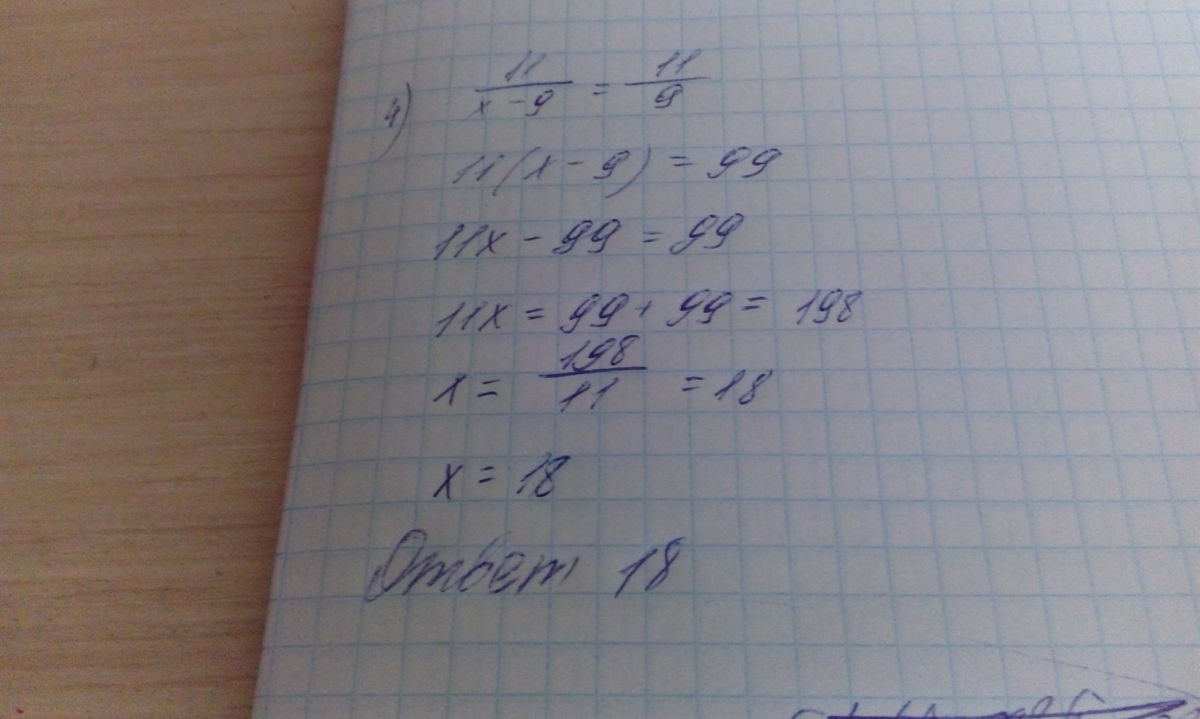 4) 11/(x - 9) = 11/9
11(x - 9) = 99
11x - 99 = 99
11x = 99 + 99 = 198
x = 198/11 = 18
x = 18
Ответ 18